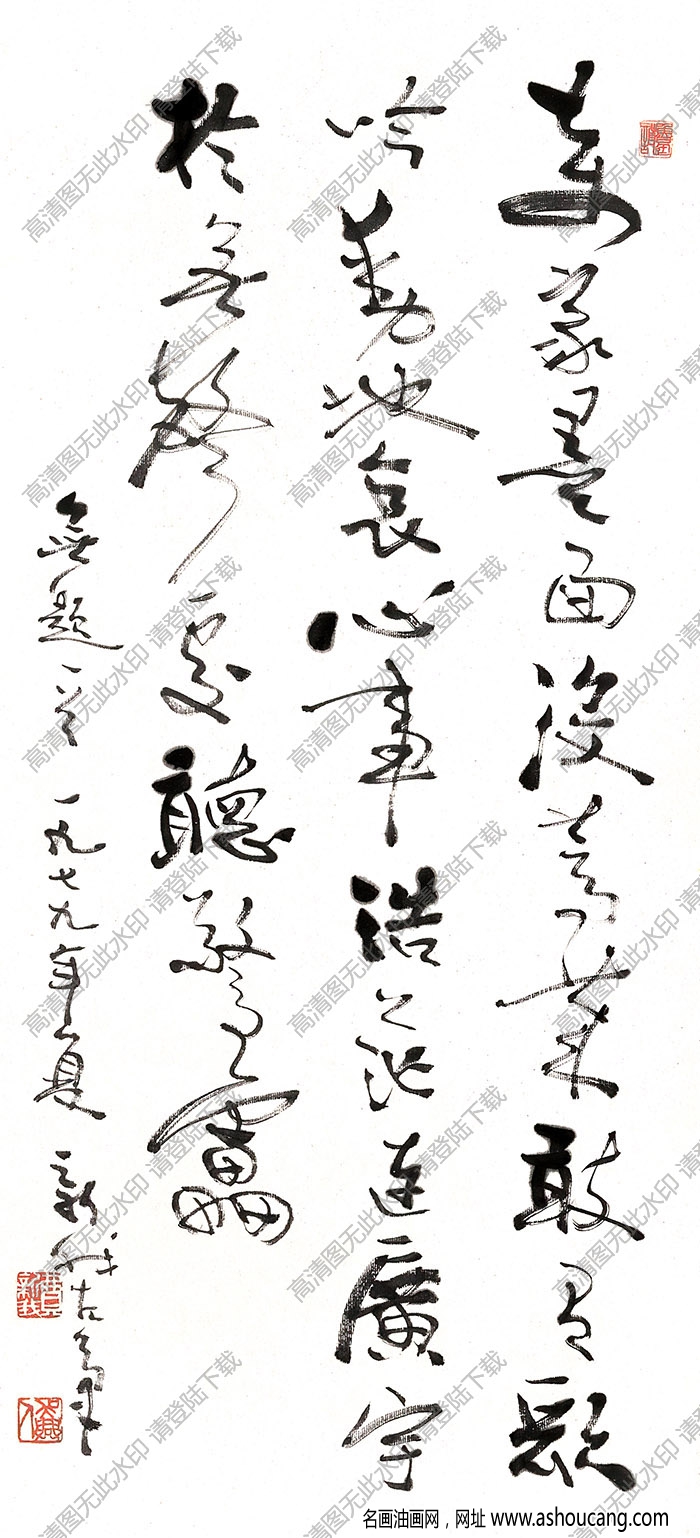 萬家墨面没蒿萊敢有歌
吟動地哀心事浩茫連廣宇
於無聲處聽驚靁
無題一首 一九七九年夏 新我左筆
高清图无此水印 请登陆下载
名画油画网，网址 www.ashoucang.com